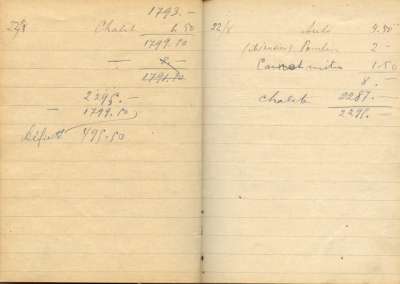 1793.-
22/8 Chalet 6.50
1799.50
— 8.-
1791.50
2295.-
- 1799.50
Déficit 495.50
22/8 Auto 4.50
2 -
Carnet 1.50
8.-
Chalet 2287.-
2295.-